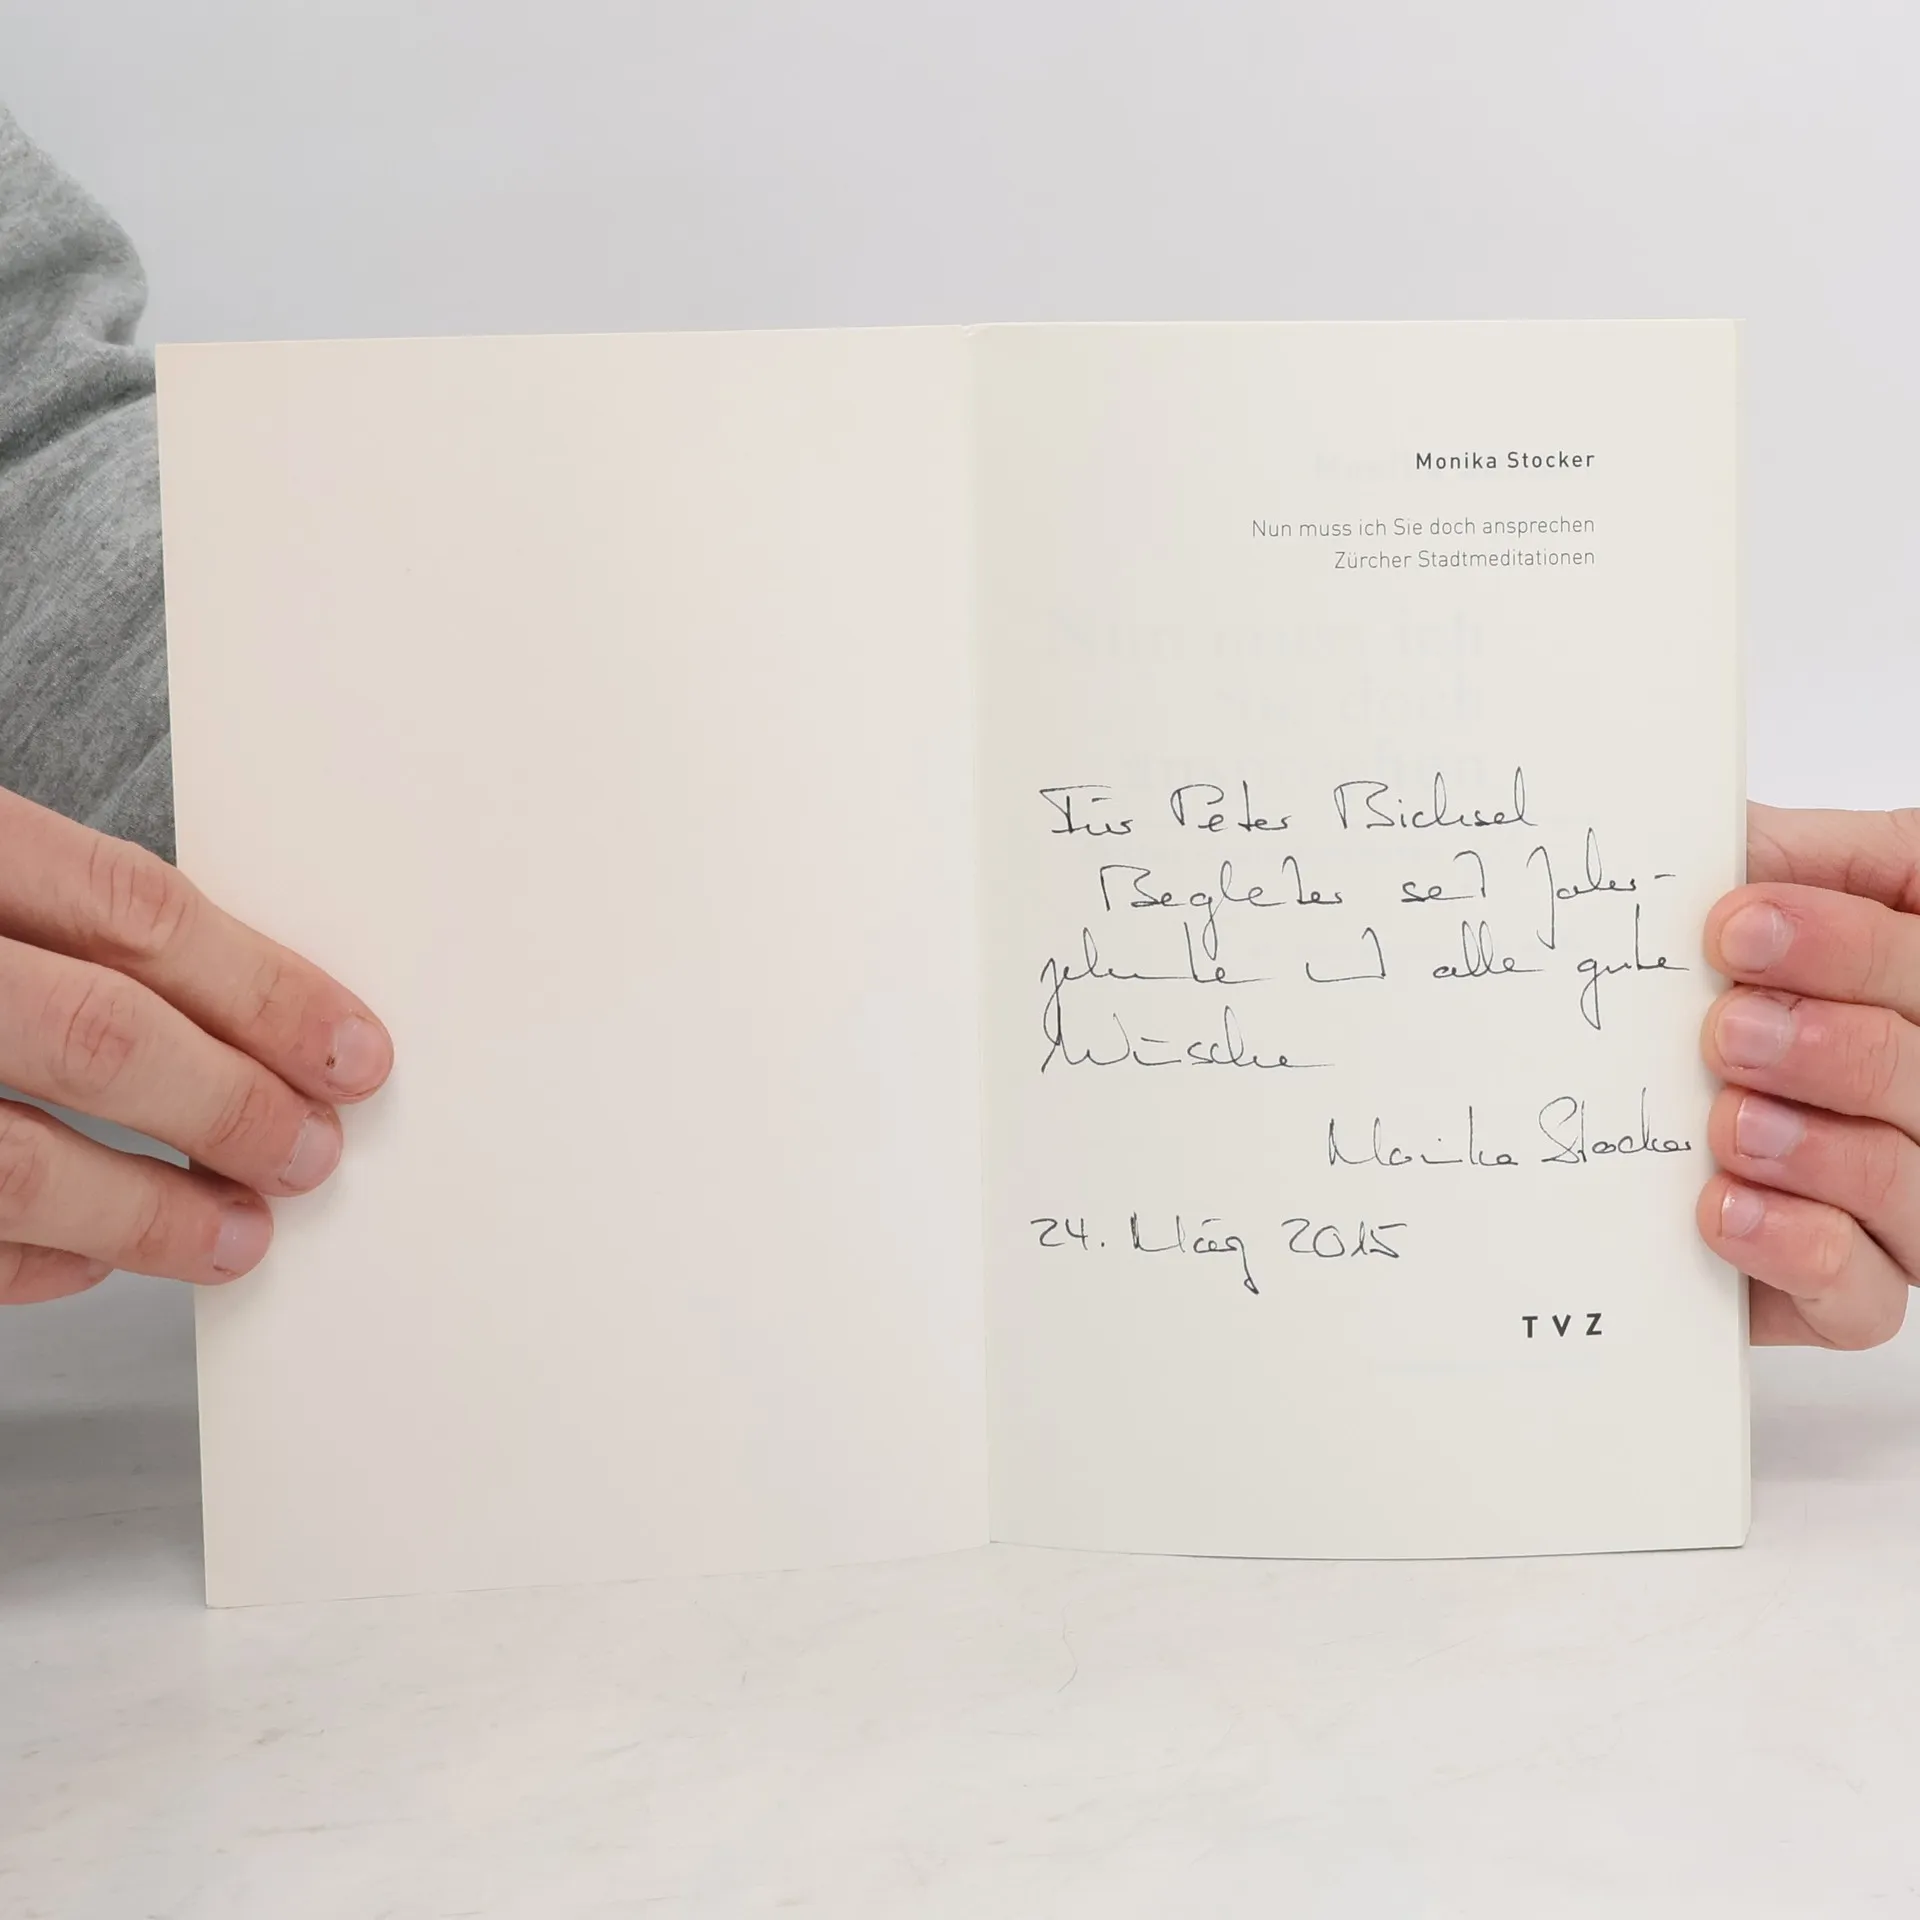 Monika Stocker
Nun muss ich Sie doch ansprechen
Zürcher Stadtmeditationen
Für Peter Bichsel
Begleiter seit Jahr-
zehnte und alle gute
Wünsche
Monika Stocker
24. März 2015
TVZ